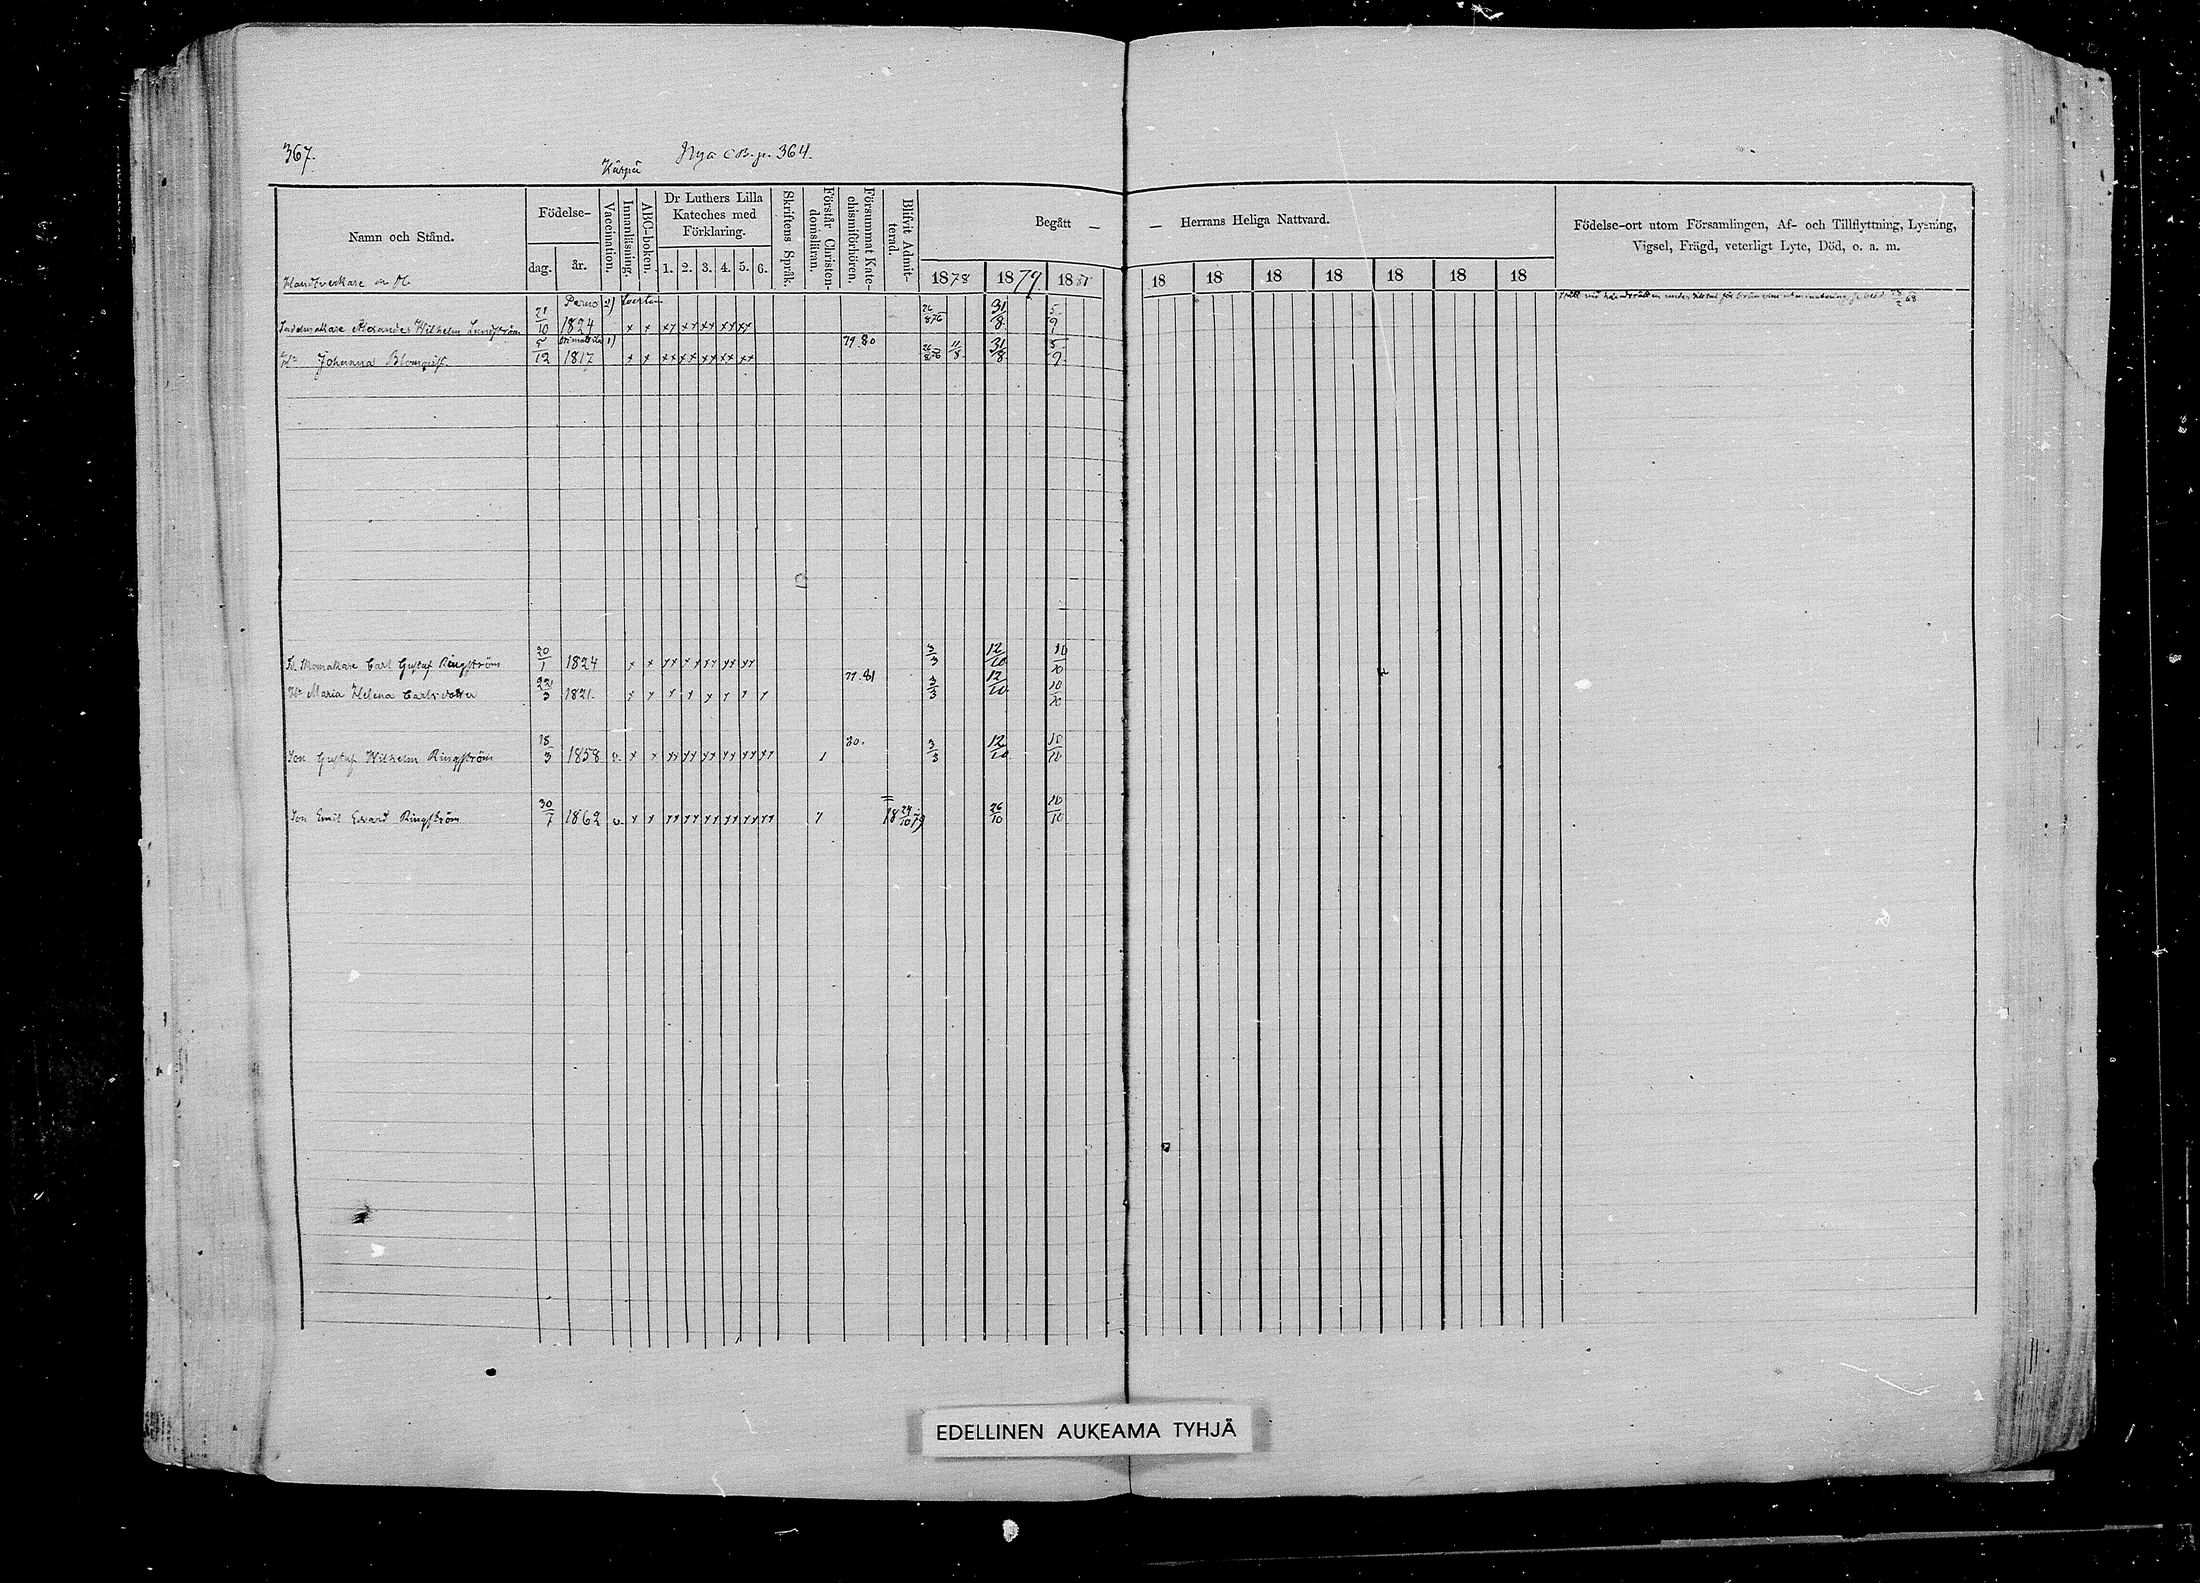 367.
Nya CB. p. 364.
Käspä
Namn och Stånd.
Födelse-
dag.
år.
Vaccination.
Innanläsning.
ABC-boken.
Dr Luthers Lilla
Kateches med
Förklaring.
1. 2. 3. 4. 5. 6.
Skriftens Språk.
Förstår Christen-
domsläran.
Försummat Kate-
chismiförhören.
Blifvit Admit-
terad.
Begått —
— Herrans Heliga Nattvard.
1878 1879 1881
18 18 18 18 18 18 18
Födelse-ort utom Församlingen, Af- och Tillflyttning, Lysning,
Vigsel, Frägd, veterligt Lyte, Död, o. a. m.
Perno 2)
Alexander Wilhelm Lundström 21/10 1824 x x xx xx xx xx xx 31/8 5/9
1)
Hu Johanna Blomqvist 5/12 1817 x x xx xx xx xx xx 79.80 11/8 31/8 5/9
Carl Gustaf Ringström 20/1 1824 x x xx xx xx xx xx 3/3 12/10 10/10
Hu Maria Helena Carlsdotter 22/3 1821. x x x x x x x x 79.81 3/3 12/10 10/10
Son Gustaf Wilhelm Ringström 18/3 1858 v. x x xx xx xx xx xx xx 1 80. 3/3 12/10 10/10
Son Emil Edvard Ringström 30/7 1862 v. x x xx xx xx xx xx xx 1 18 24/10 79 26/10 10/10
EDELLINEN AUKEAMA TYHJÄ